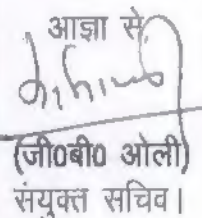 आज्ञा से
(जी0बी0 ओली)
संयुक्त सचिव।